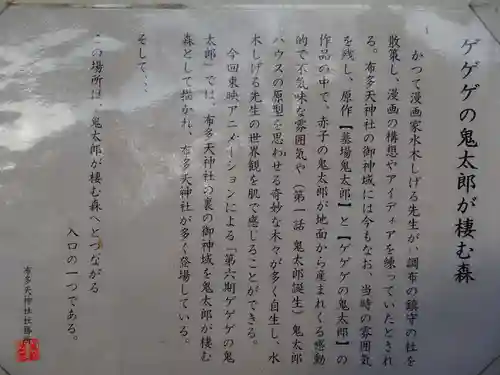 ゲゲゲの鬼太郎が棲む森
かつて漫画家水木しげる先生が、調布の鎮守の杜を
散策し、漫画の構想やアイディアを練っていたとされ
る。布多天神社の御神域には今もなお、当時の雰囲気
を残し、原作【墓場鬼太郎】と【ゲゲゲの鬼太郎】の
作品の中で、赤子の鬼太郎が地面から産まれくる感動
的で不気味な雰囲気や(第一話 鬼太郎誕生)鬼太郎
ハウスの原型を思わせる奇妙な木々が多く自生し、水
木しげる先生の世界観を肌で感じることができる。
今回東映アニメーションによる「第六期ゲゲゲの鬼
太郎」では、布多天神社の裏の御神域を鬼太郎が棲む
森として描かれ、布多天神社が多く登場している。
そして、、、
この場所は、鬼太郎が棲む森へとつながる
入口の一つである。
布多天神社社務所